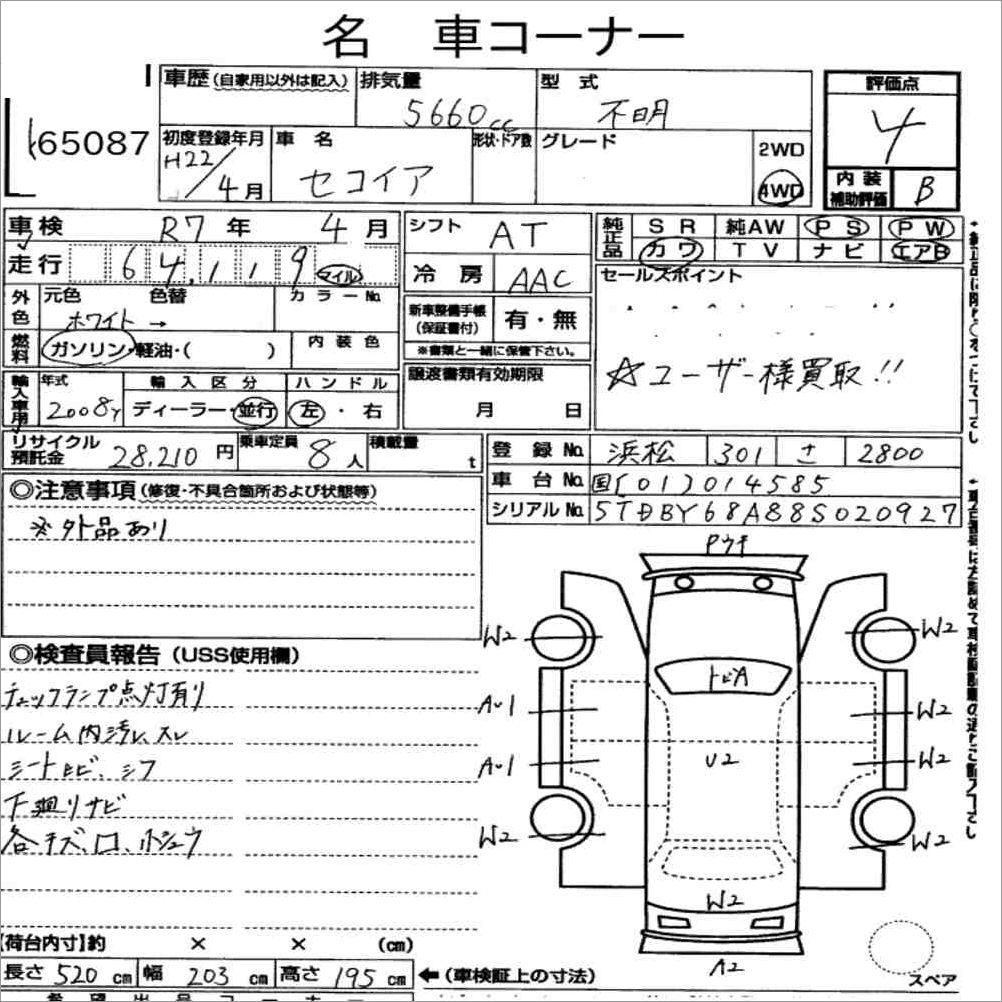 名 車コーナー
65087
車歴(自家用以外は記入) 排気量 5660cc 型式 不明 評価点 4
初度登録年月 H22/4月 車名 セコイア 形状・ドア数 グレード 2WD 4WD 内装補助評価 B
車検 R7年 4月 シフト AT 純正品 SR 純AW PS PW
走行 64,119 マイル 冷房 AAC カワ TV ナビ エアB
外色 元色 ホワイト → 色替 カラーNo. 新車整備手帳(保証書付) 有・無 セールスポイント
燃料 ガソリン・軽油・( ) 内装色 ※書類と一緒に保管下さい。 ☆ユーザー様買取!!
輸入車用 年式 2008y 輸入区分 ディーラー・並行 ハンドル 左・右 譲渡書類有効期限 月 日
リサイクル預託金 28,210円 乗車定員 8人 積載量 t 登録No. 浜松 301 さ 2800
車台No. 国[01]014585
シリアルNo. 5TDBY68A88S020927
◎注意事項(修復・不具合箇所および状態等)
※外品あり
◎検査員報告(USS使用欄)
チェックランプ点灯有り
ルーム内汚レ、スレ
シートヒビ、シワ
下廻りサビ
各キズ、凹、ホシュウ
Pウキ
W2 W2
トビA
A-1 W2
A-1 U2 W2
W2 W2
W2
A2
スペア
【荷台内寸】約 × × (cm)
長さ 520cm 幅 203cm 高さ 195cm ←(車検証上の寸法)